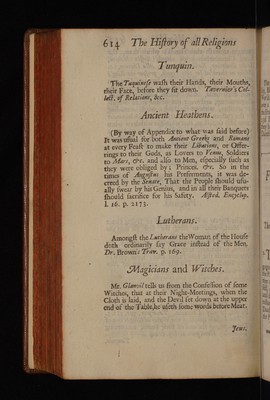 614 The History of all Religions
Tunquin.
The Tuquinese wash their Hands, their Mouths,
their Face, before they sit down. Tavernier's Col-
lect. of Relations, &c.
Ancient Heathens.
(By way of Appendix to what was said before)
It was usual for both Ancient Greeks and Romans
at every Feast to make their Libations, or Offer-
rings to their Gods, as Lovers to Venus, Soldiers
to Mars, &c. and also to Men, especially such as
they were obliged by; Princes, &c. So in the
times of Augustus his Preferments, it was de-
creed by the Senate, That the People should usu-
ally swear by his Genius, and in all their Banquets
should sacrifice for his Safety. Alsted. Encyclop.
l. 16. p. 1175.
Lutherans.
Amongst the Lutherans the Woman of the House
doth ordinarily say Grace instead of the Men.
Dr. Brown's Trav. p. 169.
Magicians and Witches.
Mr. Glanvil tells us from the Confession of some
Witches, that at their Night-Meetings, when the
Cloth is laid, and the Devil set down at the upper
end of the Table, he useth some words before Meat.
Jews.